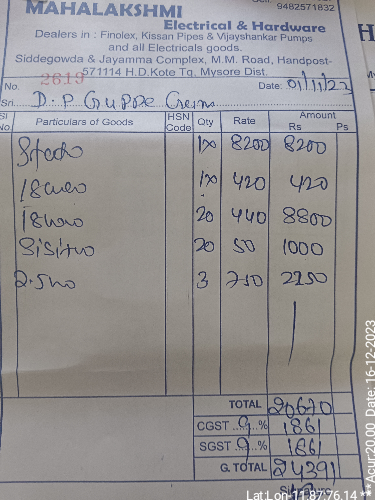 9482571832
MAHALAKSHMI
Electrical & Hardware
Dealers in : Finolex, Kissan Pipes & Vijayshankar Pumps
and all Electricals goods.
Siddegowda & Jayamma Complex, M.M. Road, Handpost-
571114 H.D.Kote Tq. Mysore Dist.
No. 2619 Date: 01/11/23
Sri D.P.
Sl No. Particulars of Goods HSN Code Qty Rate Amount Rs Ps
8200 8200
420 420
20 440 8800
20 50 1000
3 750 2250
TOTAL 20670
CGST 9 % 1861
SGST 9 % 1861
G. TOTAL 24391
Lat:Lon-11.87:76.14 *** Acur:20.00 Date: 16-12-2023